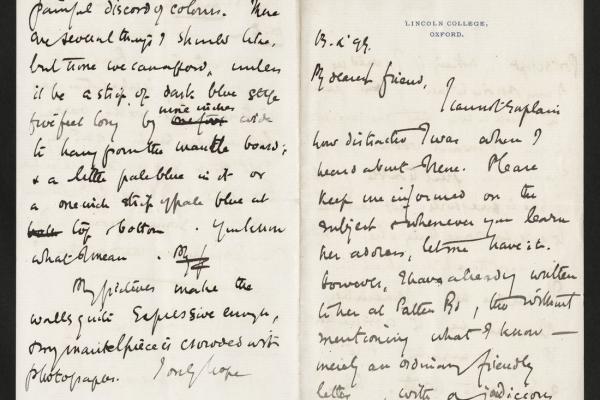 painful discord of colours. There
are several things I should like,
but none we can afford, unless
it be a strip of dark blue serge
five feet long by nine inches one foot wide
to hang from the mantle board;
& a little pale blue in it or
a one inch strip of pale blue at
top & bottom. You know
what I mean.
My pictures make the
walls quite expressive enough,
& my mantelpiece is crowded with
photographs. I only hope
LINCOLN COLLEGE,
OXFORD.
My dearest friend,
I cannot explain
how distracted I was when I
heard about Irene. Please
keep me informed on the
subject & whenever you learn
her address, let me have it.
however, I have already written
to her at Patten Rd, tho' without
mentioning what I know —
merely an ordinary friendly
letter, with a judicious